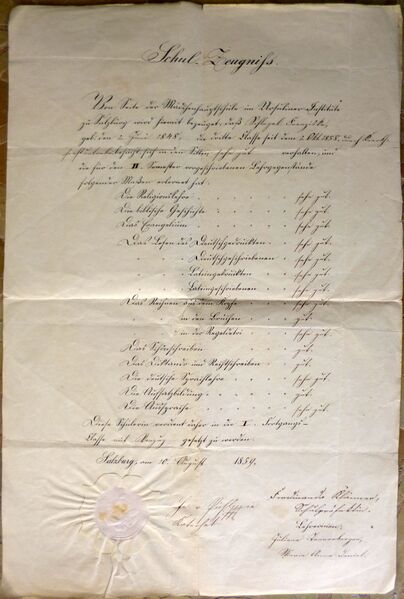 Schul-Zeugniß.
Von Seite der Mädchenhauptschule im Ursuliner-Institute
zu Salzburg wird hiemit bezeuget, daß Schlögel Franziska,
geb. den 2. Juni 1848, die dritte Klasse seit dem 2. Okt. 1858, durch
sich in den Sitten sehr gut verhalten, und
die für den II. Semester vorgeschriebenen Lehrgegenstände
folgender Maßen erlernet hat:
Die Religionslehre sehr gut.
Die biblische Geschichte sehr gut.
Das Evangelium sehr gut.
Das Lesen des Deutschgedruckten sehr gut.
" " " Deutschgeschriebenen sehr gut.
" " " Lateingedruckten sehr gut.
" " " Lateingeschriebenen sehr gut.
Das Rechnen aus dem Kopfe sehr gut.
" " in den Brüchen gut.
" " in der Regeldetri sehr gut.
Das Schönschreiben gut.
Das Diktando und Rechtschreiben gut.
Die deutsche Sprachlehre sehr gut.
Die Aufsatzbildung gut.
Die Aussprache sehr gut.
Diese Schülerin verdient daher in die I. Fortgangs-
Klasse mit Vorzug gesetzt zu werden.
Salzburg, am 10. August 1859.
Katechet
Ferdinanda
Schulpräfektin
Lehrerinnen,
Juliana
Maria Anna